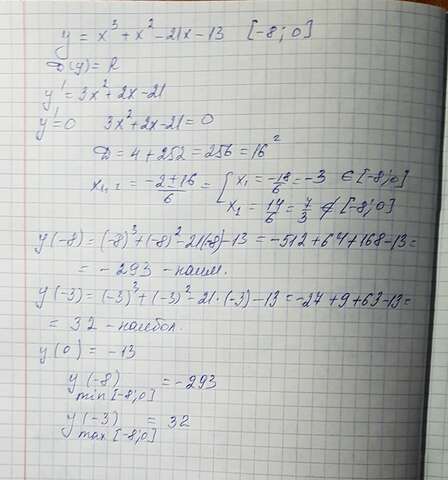 y = x³ + x² - 21x - 13 [-8; 0]
D(y) = R
y' = 3x² + 2x - 21
y' = 0 3x² + 2x - 21 = 0
D = 4 + 252 = 256 = 16²
x₁,₂ = (-2 ± 16)/6 = { x₁ = -18/6 = -3 ∈ [-8; 0]
x₁ = 14/6 = 7/3 ∉ [-8; 0]
y(-8) = (-8)³ + (-8)² - 21(-8) - 13 = -512 + 64 + 168 - 13 =
= -293 - наим.
y(-3) = (-3)³ + (-3)² - 21·(-3) - 13 = -27 + 9 + 63 - 13 =
= 32 - наибол.
y(0) = -13
y(-8) = -293
min [-8; 0]
y(-3) = 32
max [-8; 0]